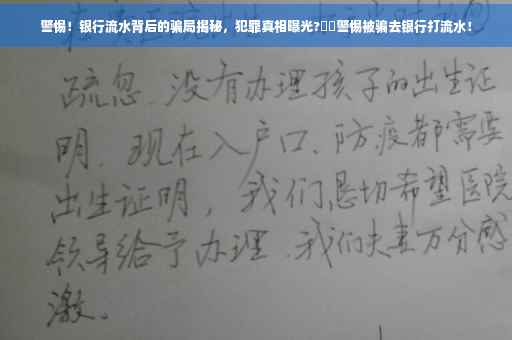 警惕！银行流水背后的骗局揭秘，犯罪真相曝光?▯▯警惕被骗去银行打流水！
疏忽、没有办理孩子的出生证
明、现在入户口、防疫都需要
出生证明，我们恳切希望医院
领导给予办理、我们夫妻万分感
激。